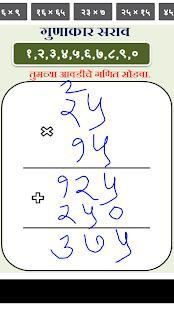 ६ × ९ १६ × ६५ २३ × ७ २५ × १५ ४५
गुणाकार सराव
१,२,३,४,५,६,७,८,९,०
तुमच्या आवडीचे गणित सोडवा.
२
२५
×
१५
१२५
+
२५०
३७५